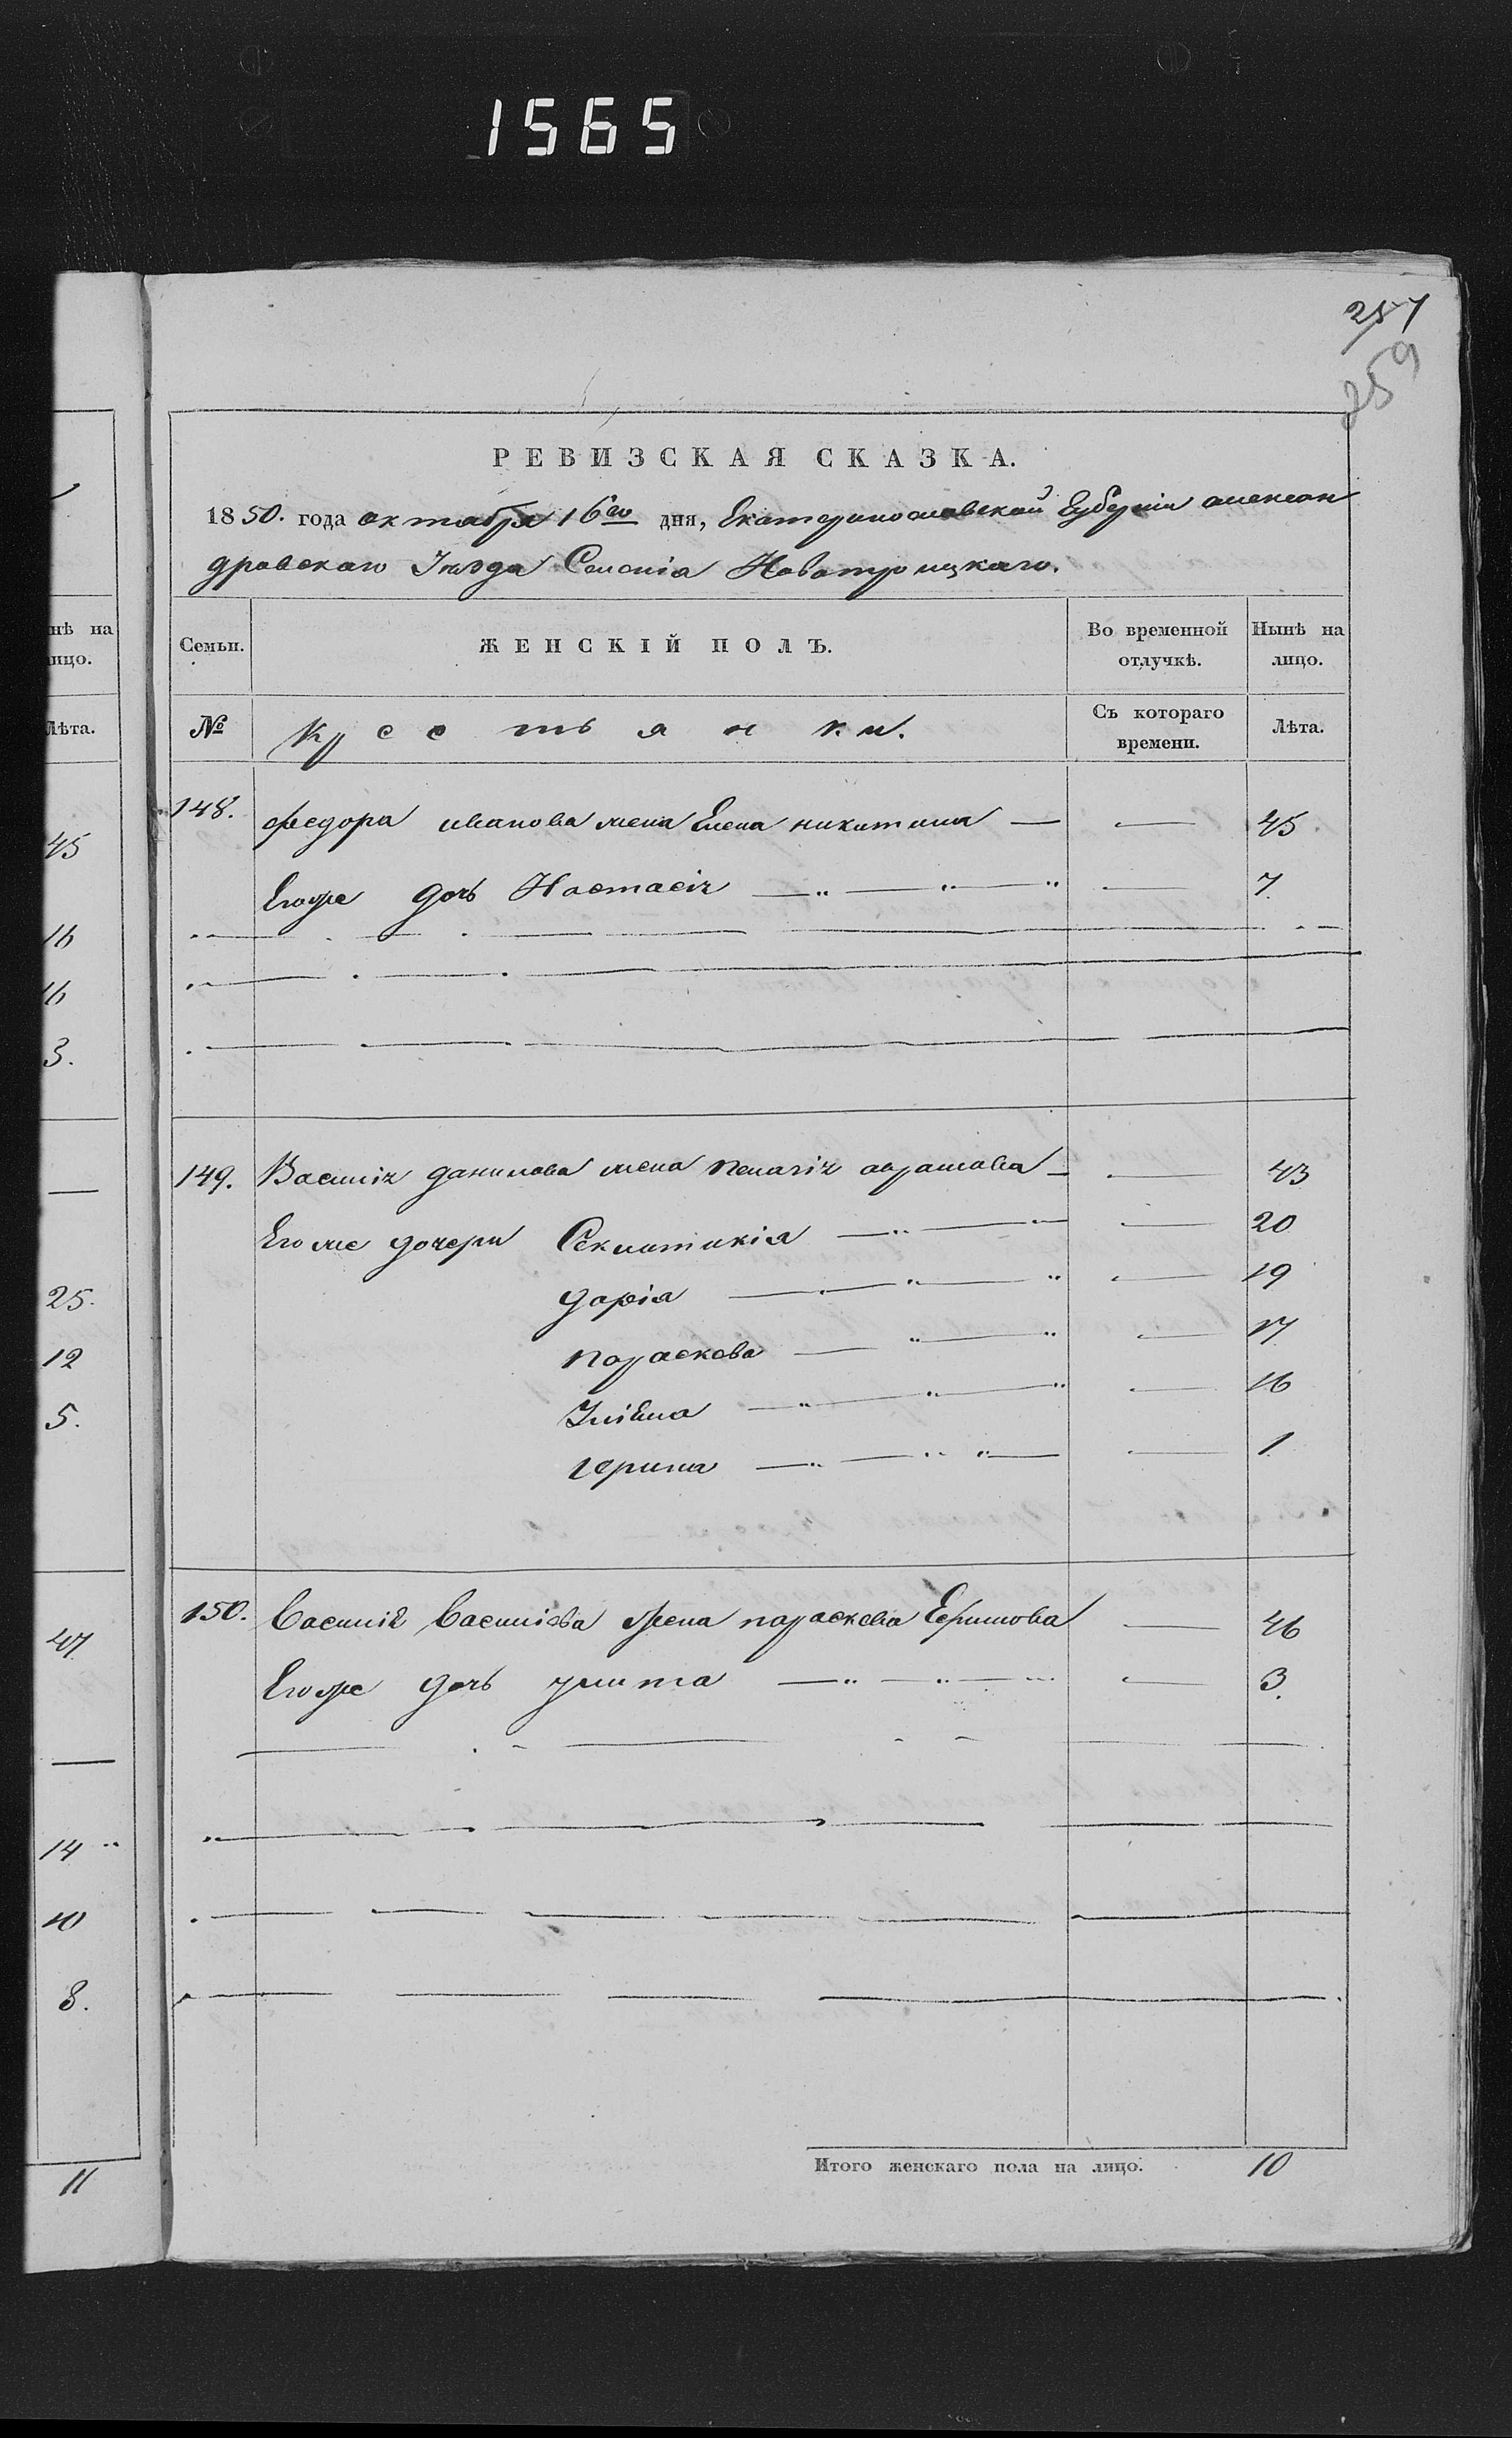 1565
257
259
РЕВИЗСКАЯ СКАЗКА.
1850. года октября 16го дня, Екатеринославской Губерніи алексан
дровскаго Уезда Селенія Новотроицкаго.
нѣ на
лицо.
Лѣта.
45
16
16
3.
25.
12
5.
47
14
10
8.
11
Семьи. ЖЕНСКІЙ ПОЛЪ. Во временной отлучкѣ. Нынѣ на лицо.
№ Крестьянки. Съ котораго времени. Лѣта.
148. Федора иванова жена Елена никитина — — 45
Егоже дочь Настасія — — 7.
149. Василія данилова жена Пелагія — 43
Егоже дочери — 20
дарія — — 19
параскева — — 17
— 16
— 1.
150. Василія Василіева жена параскева Ефимова — 46
Егоже дочь улита — — 3.
Итого женскаго пола на лицо. 10